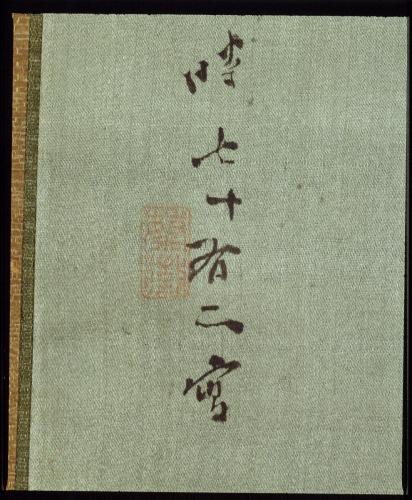 時七十有二寫